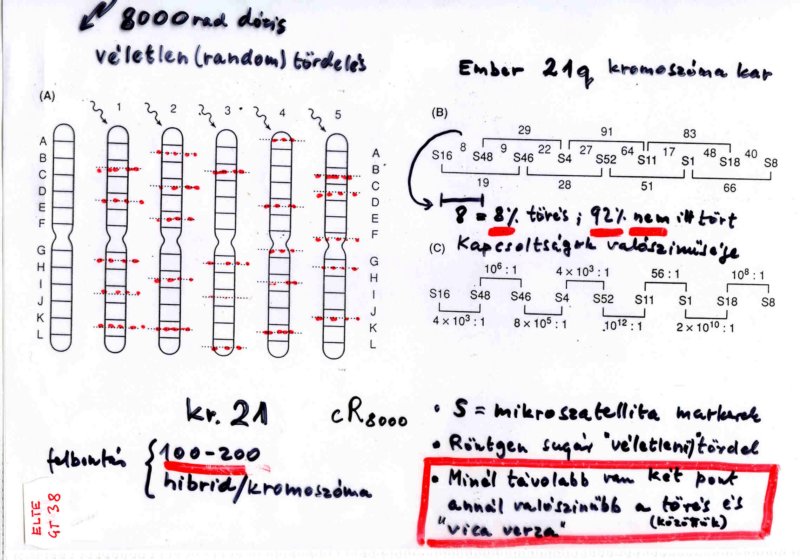 8000 rad dózis
véletlen (random) tördelés
Ember 21q kromoszóma kar
(A)
1 2 3 4 5
A
B
C
D
E
F
G
H
I
J
K
L
A
B
C
D
E
F
G
H
I
J
K
L
(B)
29 91 83
8 9 22 27 64 17 48 40
S16 S48 S46 S4 S52 S11 S1 S18 S8
19 28 51 66
8 = 8% törés ; 92% nem itt tört
Kapcsoltságok valószinűsége
(C)
10⁶ : 1 4 × 10³ : 1 56 : 1 10⁸ : 1
S16 S48 S46 S4 S52 S11 S1 S18 S8
4 × 10³ : 1 8 × 10⁵ : 1 10¹² : 1 2 × 10¹⁰ : 1
kr. 21 cR8000
felbontás
100-200
hibrid/kromoszóma
• S = mikroszatellita markerek
• Röntgen sugár "véletlenül" tördel
• Minál távolabb van két pont
annál valószinűbb a törés és
"vica verza" (közöttük)
ELTE
GT 38